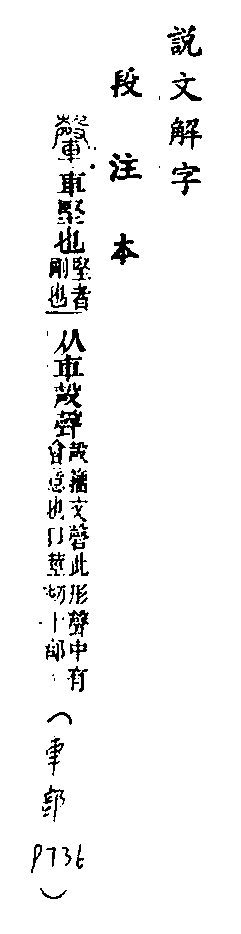 說文解字
段注本
䡰車堅也堅者剛也从車殸聲殸籒文磬此形聲中有會意也口莖切十一部(車部P736)